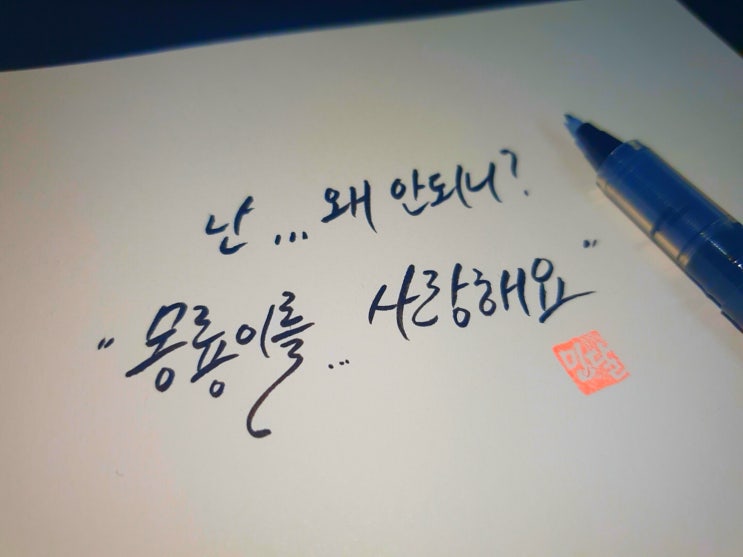 난 ... 왜 안되니?
" 몽룡이를 ... 사랑해요 "
민달